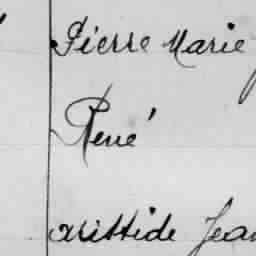 Pierre Marie
René
Aristide Jean